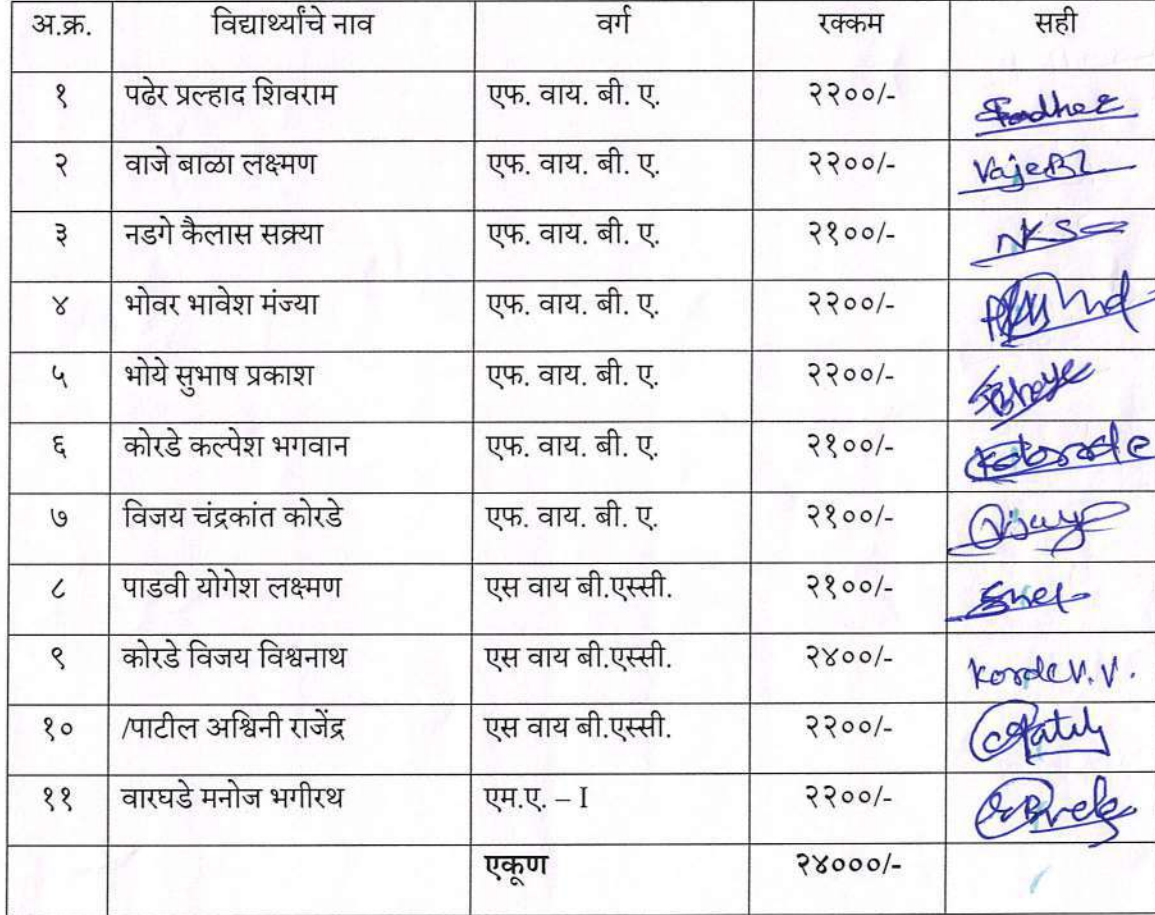 अ.क्र. विद्यार्थ्यांचे नाव वर्ग रक्कम सही
१ पढेर प्रल्हाद शिवराम एफ. वाय. बी. ए. २२००/- Padher
२ वाजे बाळा लक्ष्मण एफ. वाय. बी. ए. २२००/- VajeBL
३ नडगे कैलास सक्र्या एफ. वाय. बी. ए. २१००/- NKS
४ भोवर भावेश मंज्या एफ. वाय. बी. ए. २२००/-
५ भोये सुभाष प्रकाश एफ. वाय. बी. ए. २२००/-
६ कोरडे कल्पेश भगवान एफ. वाय. बी. ए. २१००/-
७ विजय चंद्रकांत कोरडे एफ. वाय. बी. ए. २१००/-
८ पाडवी योगेश लक्ष्मण एस वाय बी.एस्सी. २१००/-
९ कोरडे विजय विश्वनाथ एस वाय बी.एस्सी. २४००/- Korde V.V.
१० /पाटील अश्विनी राजेंद्र एस वाय बी.एस्सी. २२००/-
११ वारघडे मनोज भगीरथ एम.ए. – I २२००/-
एकूण २४०००/-